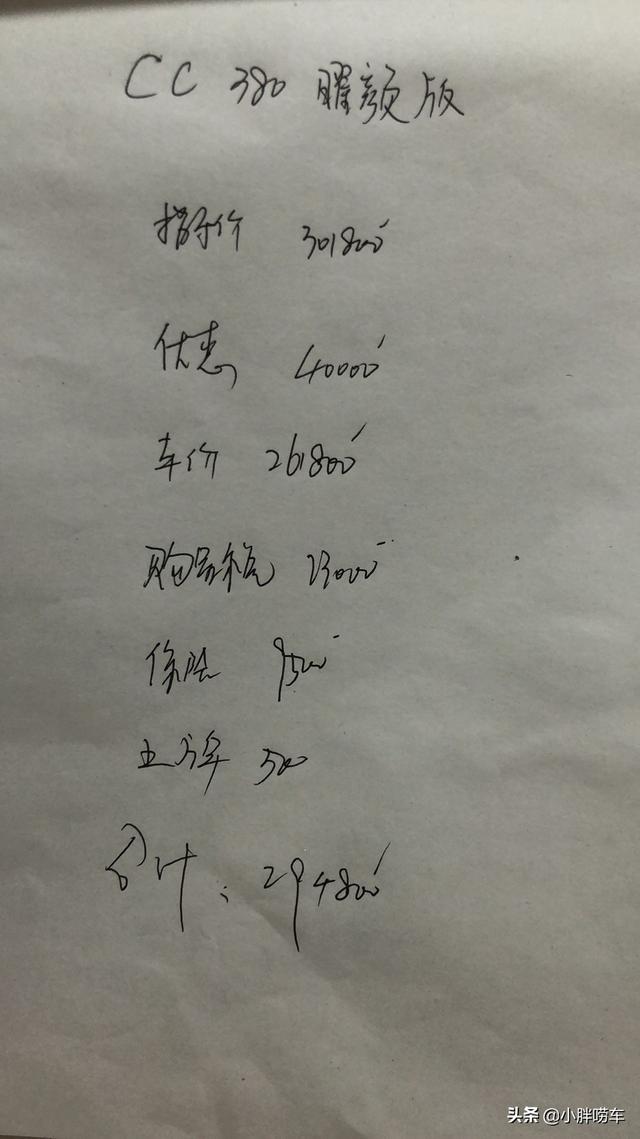 CC 380 曜颜版
指导价 301800
优惠 40000
车价 261800
购置税 23000
保险 9500
上牌 500
合计：294800
头条 @小胖唠车